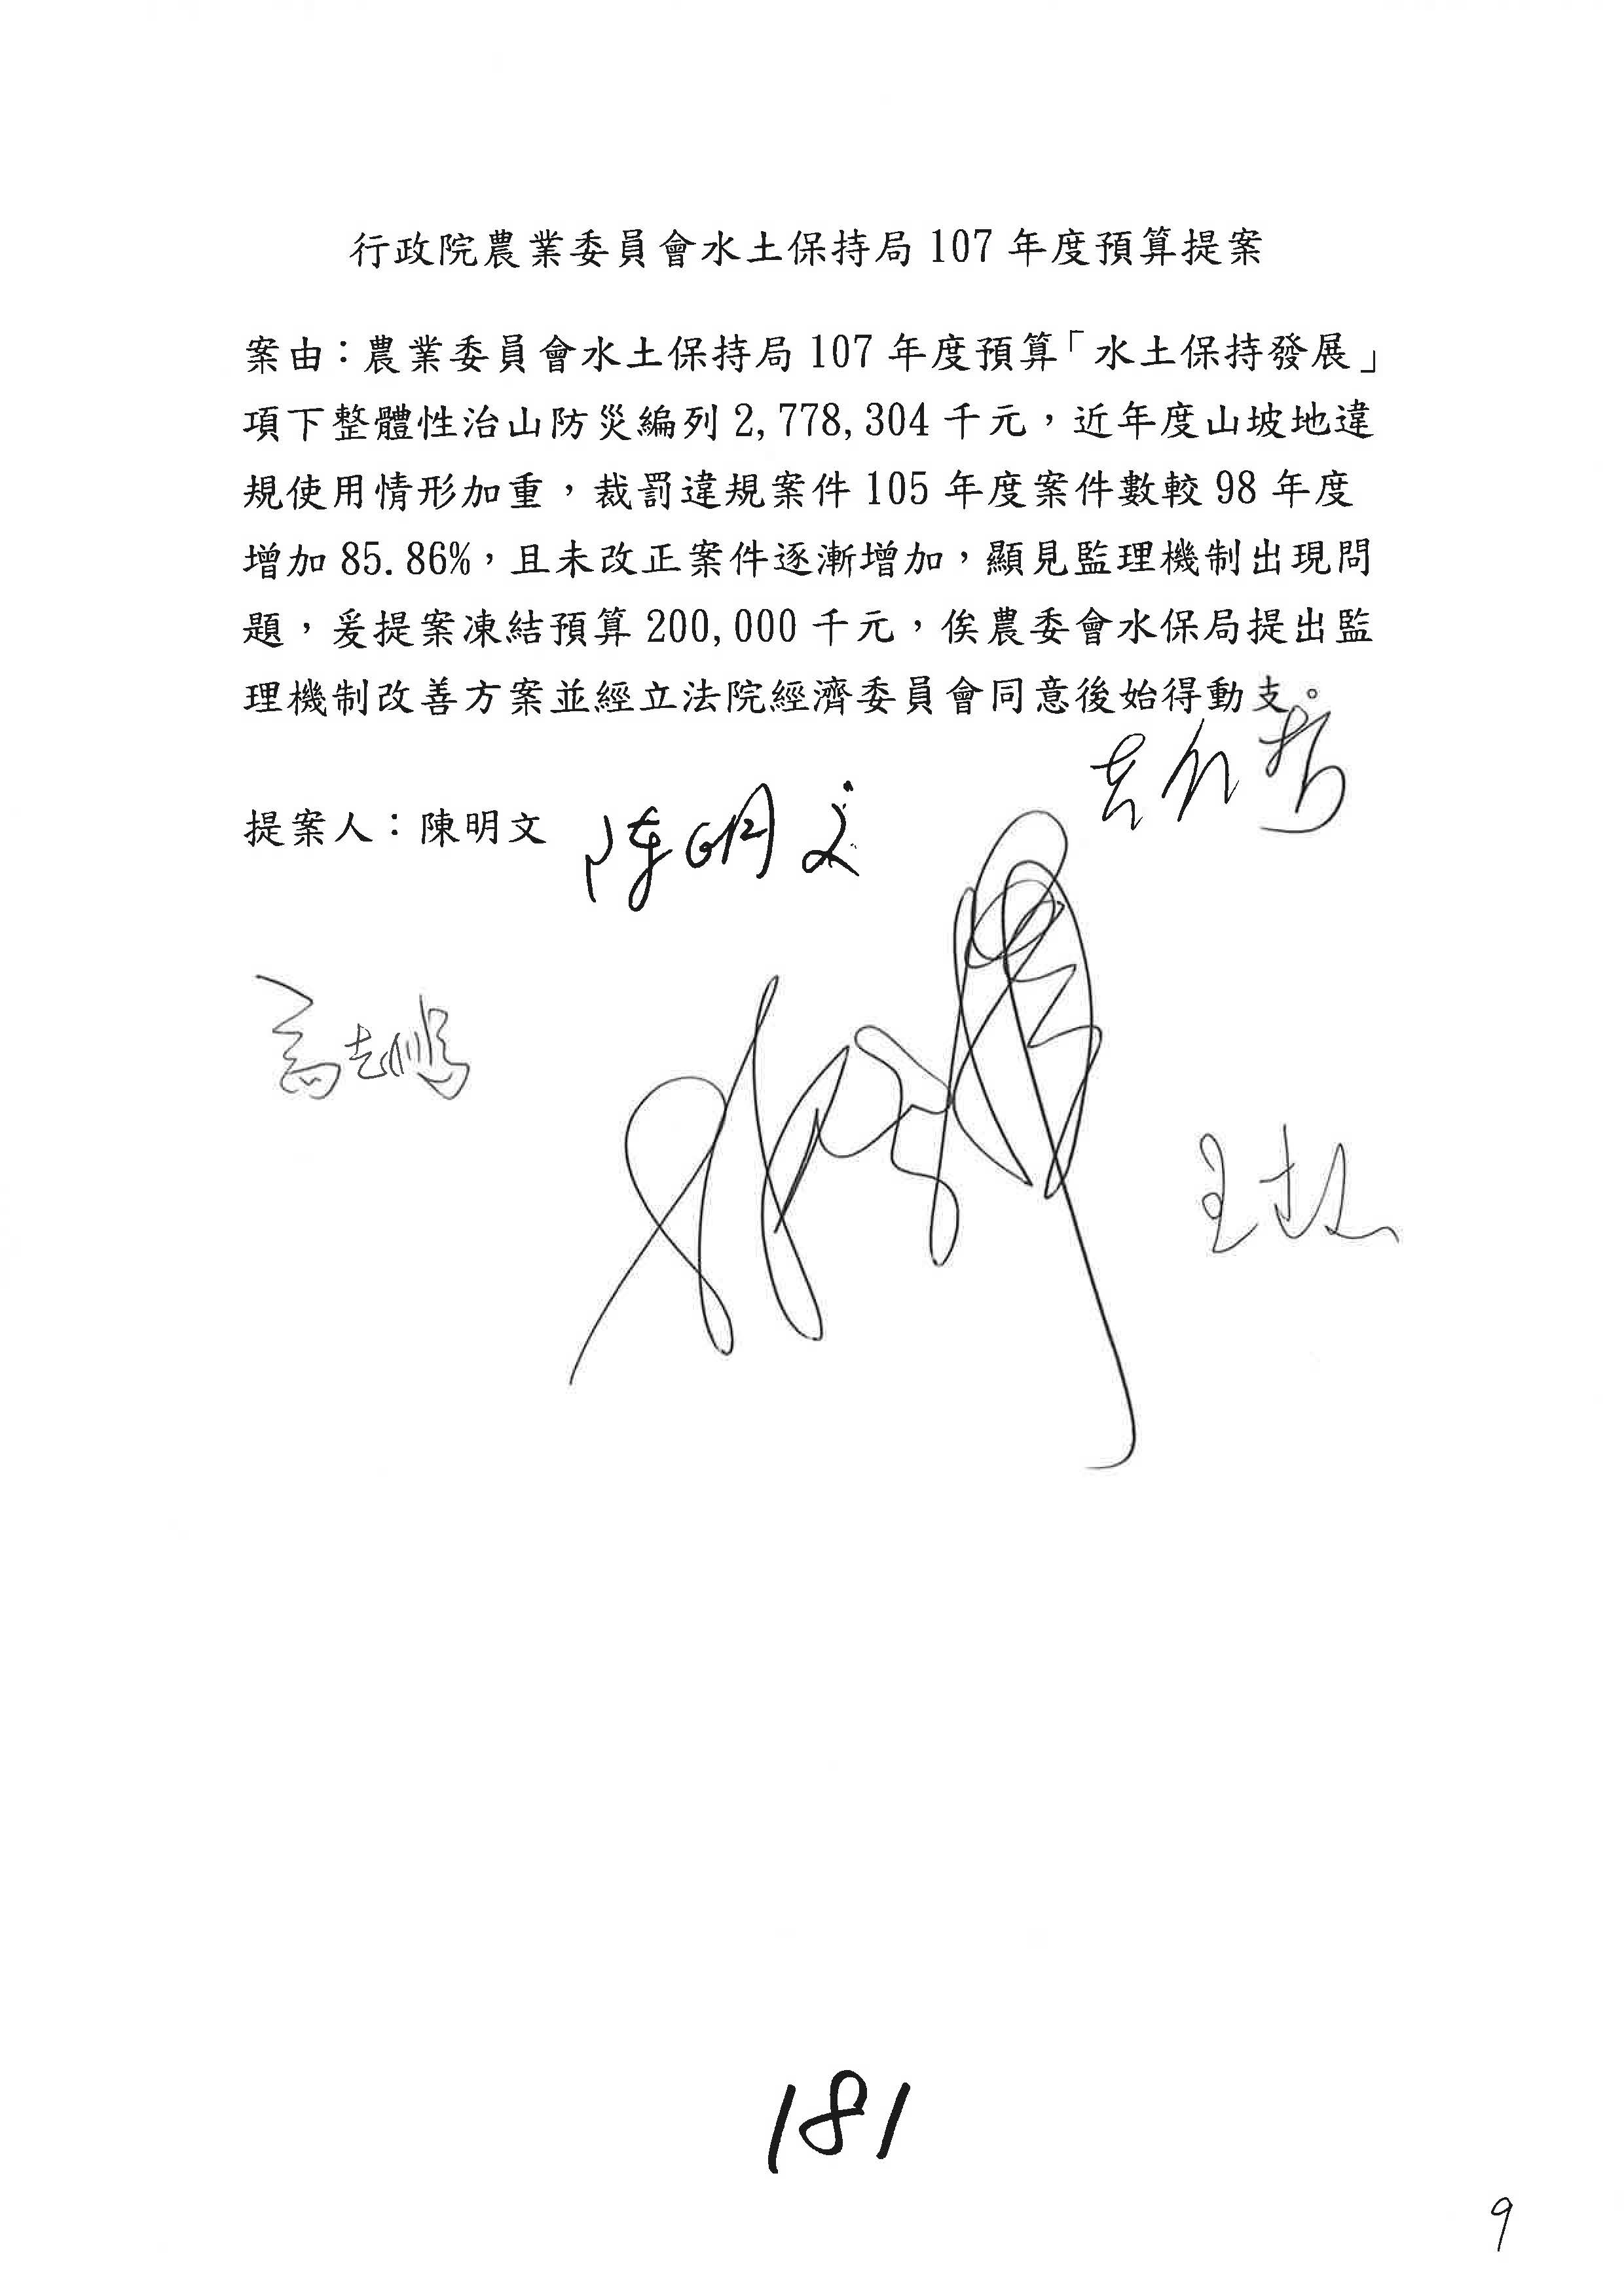 行政院農業委員會水土保持局 107 年度預算提案
案由：農業委員會水土保持局 107 年度預算「水土保持發展」
項下整體性治山防災編列 2,778,304 千元，近年度山坡地違
規使用情形加重，裁罰違規案件 105 年度案件數較 98 年度
增加 85.86%，且未改正案件逐漸增加，顯見監理機制出現問
題，爰提案凍結預算 200,000 千元，俟農委會水保局提出監
理機制改善方案並經立法院經濟委員會同意後始得動支。
提案人：陳明文 陳明文
高志鵬
181
9